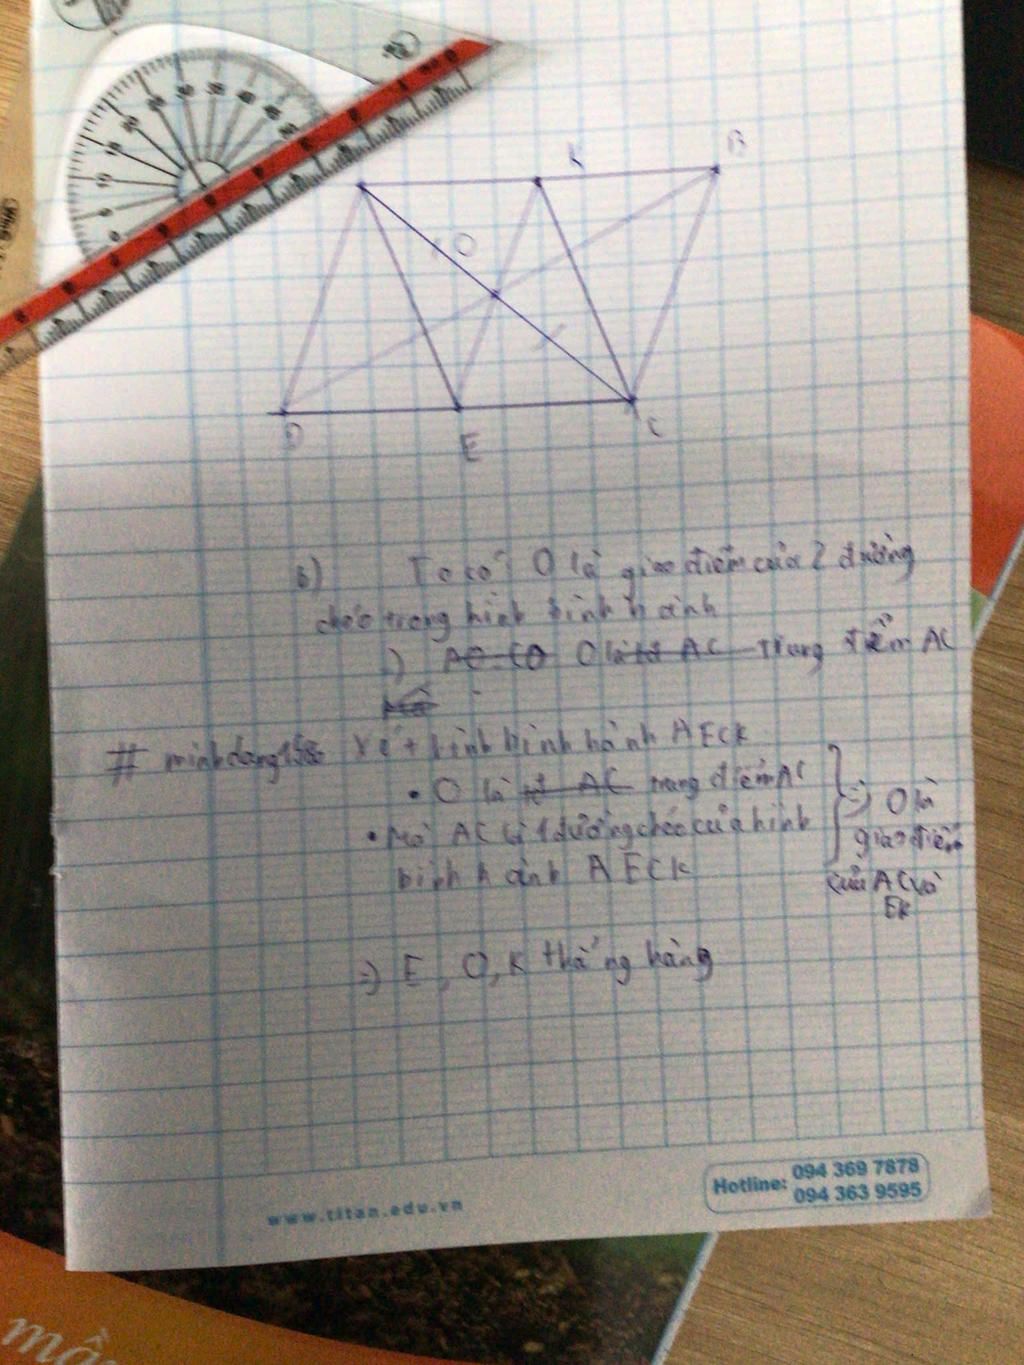 K
B
O
D
E
C
b) Ta có: O là giao điểm của 2 đường
chéo trong hình bình hành
O là trung điểm AC
# minhdang Xét hình bình hành AECK
• O là trung điểm AC
• Mà AC là 1 đường chéo của hình
bình hành AECK
=) O là
giao điểm
của AC và
EK
=) E, O, K thẳng hàng
www.titan.edu.vn
Hotline: 094 369 7878
094 363 9595
mầ